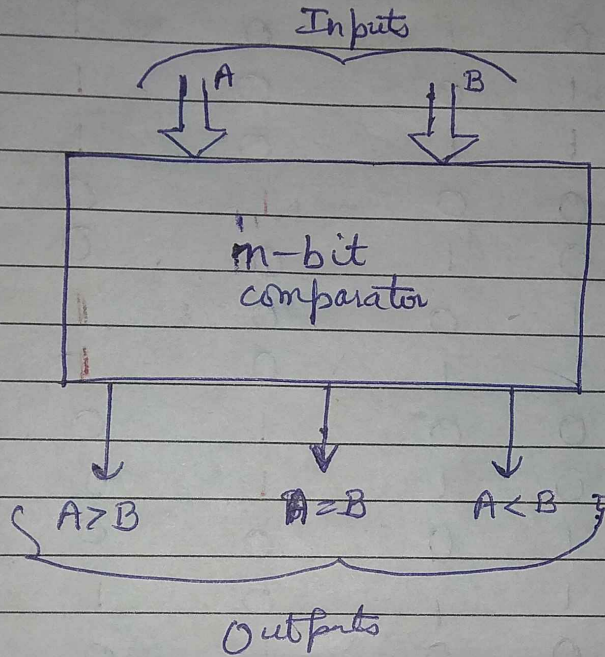 Inputs
A B
n-bit
comparator
A>B A=B A<B
Outputs